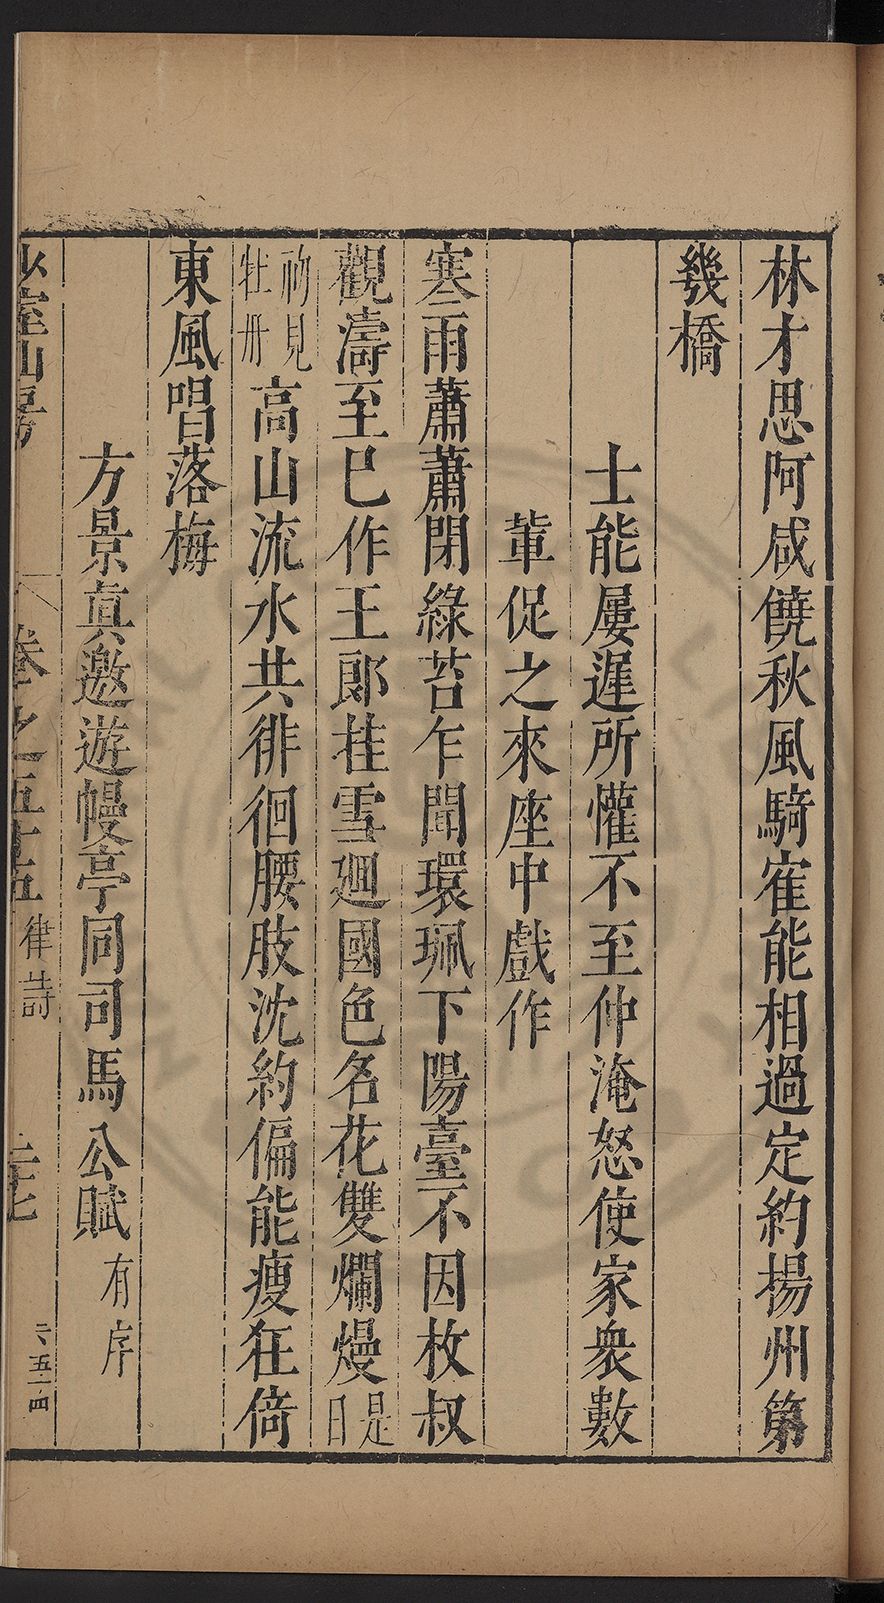 林才思阿咸饒秋風騎寉能相過定約楊州第
幾橋
士能屢遲所懽不至仲淹怒使家衆數
軰促之來座中戲作
寒雨蕭蕭閉綠苔乍聞環珮下陽臺不因枚叔
觀濤至巳作王郎挂雪廻國色名花雙爛熳是日
初見牡丹高山流水共徘徊腰肢沈約偏能瘦狂倚
東風唱落梅
方景真邀遊幔亭同司馬公賦有序
少室山房
卷之五十五 律詩 二十七
六五一四